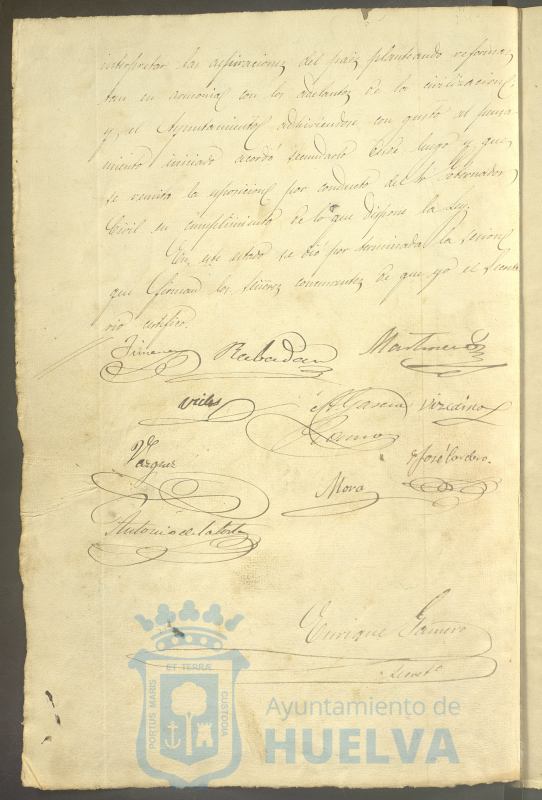 interpretar las aspiraciones del pais planteando reforma
tan en armonia con los adelantos de la civilizacion:
y, el Ayuntamiento adhiriendose con gusto al pensa-
miento iniciado acordó secundarlo desde luego y que
se remita la esposicion por conducto del Sr. Gobernador
Civil en cumplimiento de lo que dispone la Ley.
En este estado se dió por terminada la sesion
que firman los Señores concurrentes de que yo el Secreta
rio certifico.
Jimenez Rabadan Martinez
A. Garcia
Ramos
Vazquez José Cordero
Mora
Antonio de la Corte
Enrique Gamero
Secret.o
PORTUS MARIS ET TERRÆ CUSTODIA
Ayuntamiento de
HUELVA